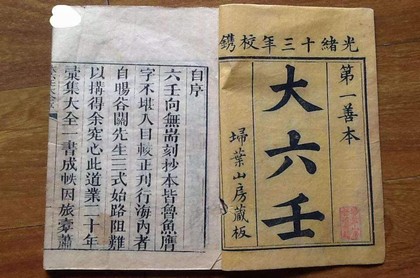 光緒十三年校鐫
第一善本
大六壬
埽葉山房藏板
自序
六壬向無耑刻抄本皆魯魚贋
字不堪入目較正刊行海內者
自賜谷闗先生三式始路阻難
以搆得余究心此道業二十年
彚集大全一書成帙因旅橐蕭